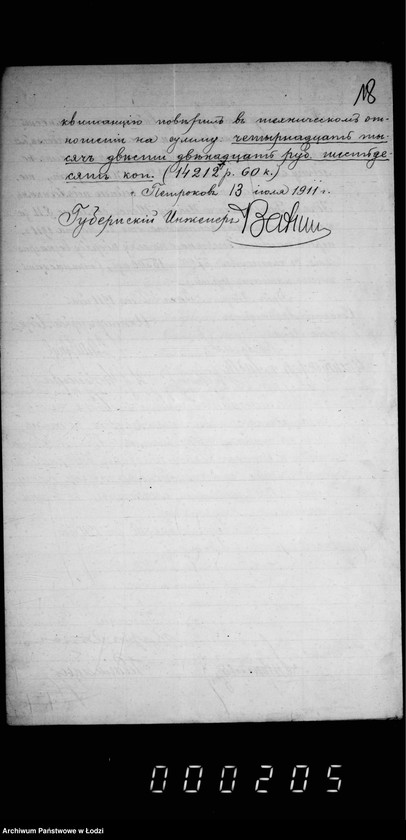 18
квитанцію повѣрилъ въ техническомъ от-
ношеніи на сумму четырнадцать ты-
сячъ двѣсти двѣнадцать руб. шестьде-
сятъ коп. (14212 р. 60 к.)
г. Петроковъ 13 іюля 1911 г.
Губернскій Инженеръ
000205
Archiwum Państwowe w Łodzi